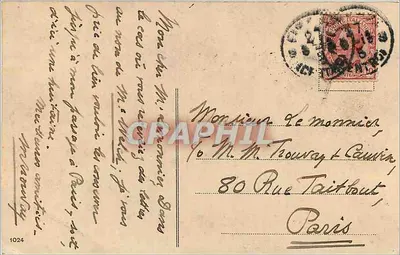 Mon cher M. Lemonnier Dans
le cas où vous auriez des lettres
au nom de Mr Walsh, je vous
prie de bien vouloir les conserver
jusqu'à mon passage à Paris, soit
d'ici une huitaine.
Meilleures amitiés
Monsieur Lemonnier,
c/o M. M. Trouvay & Cauvin,
80 Rue Taitbout,
Paris
CPARHIL
1024